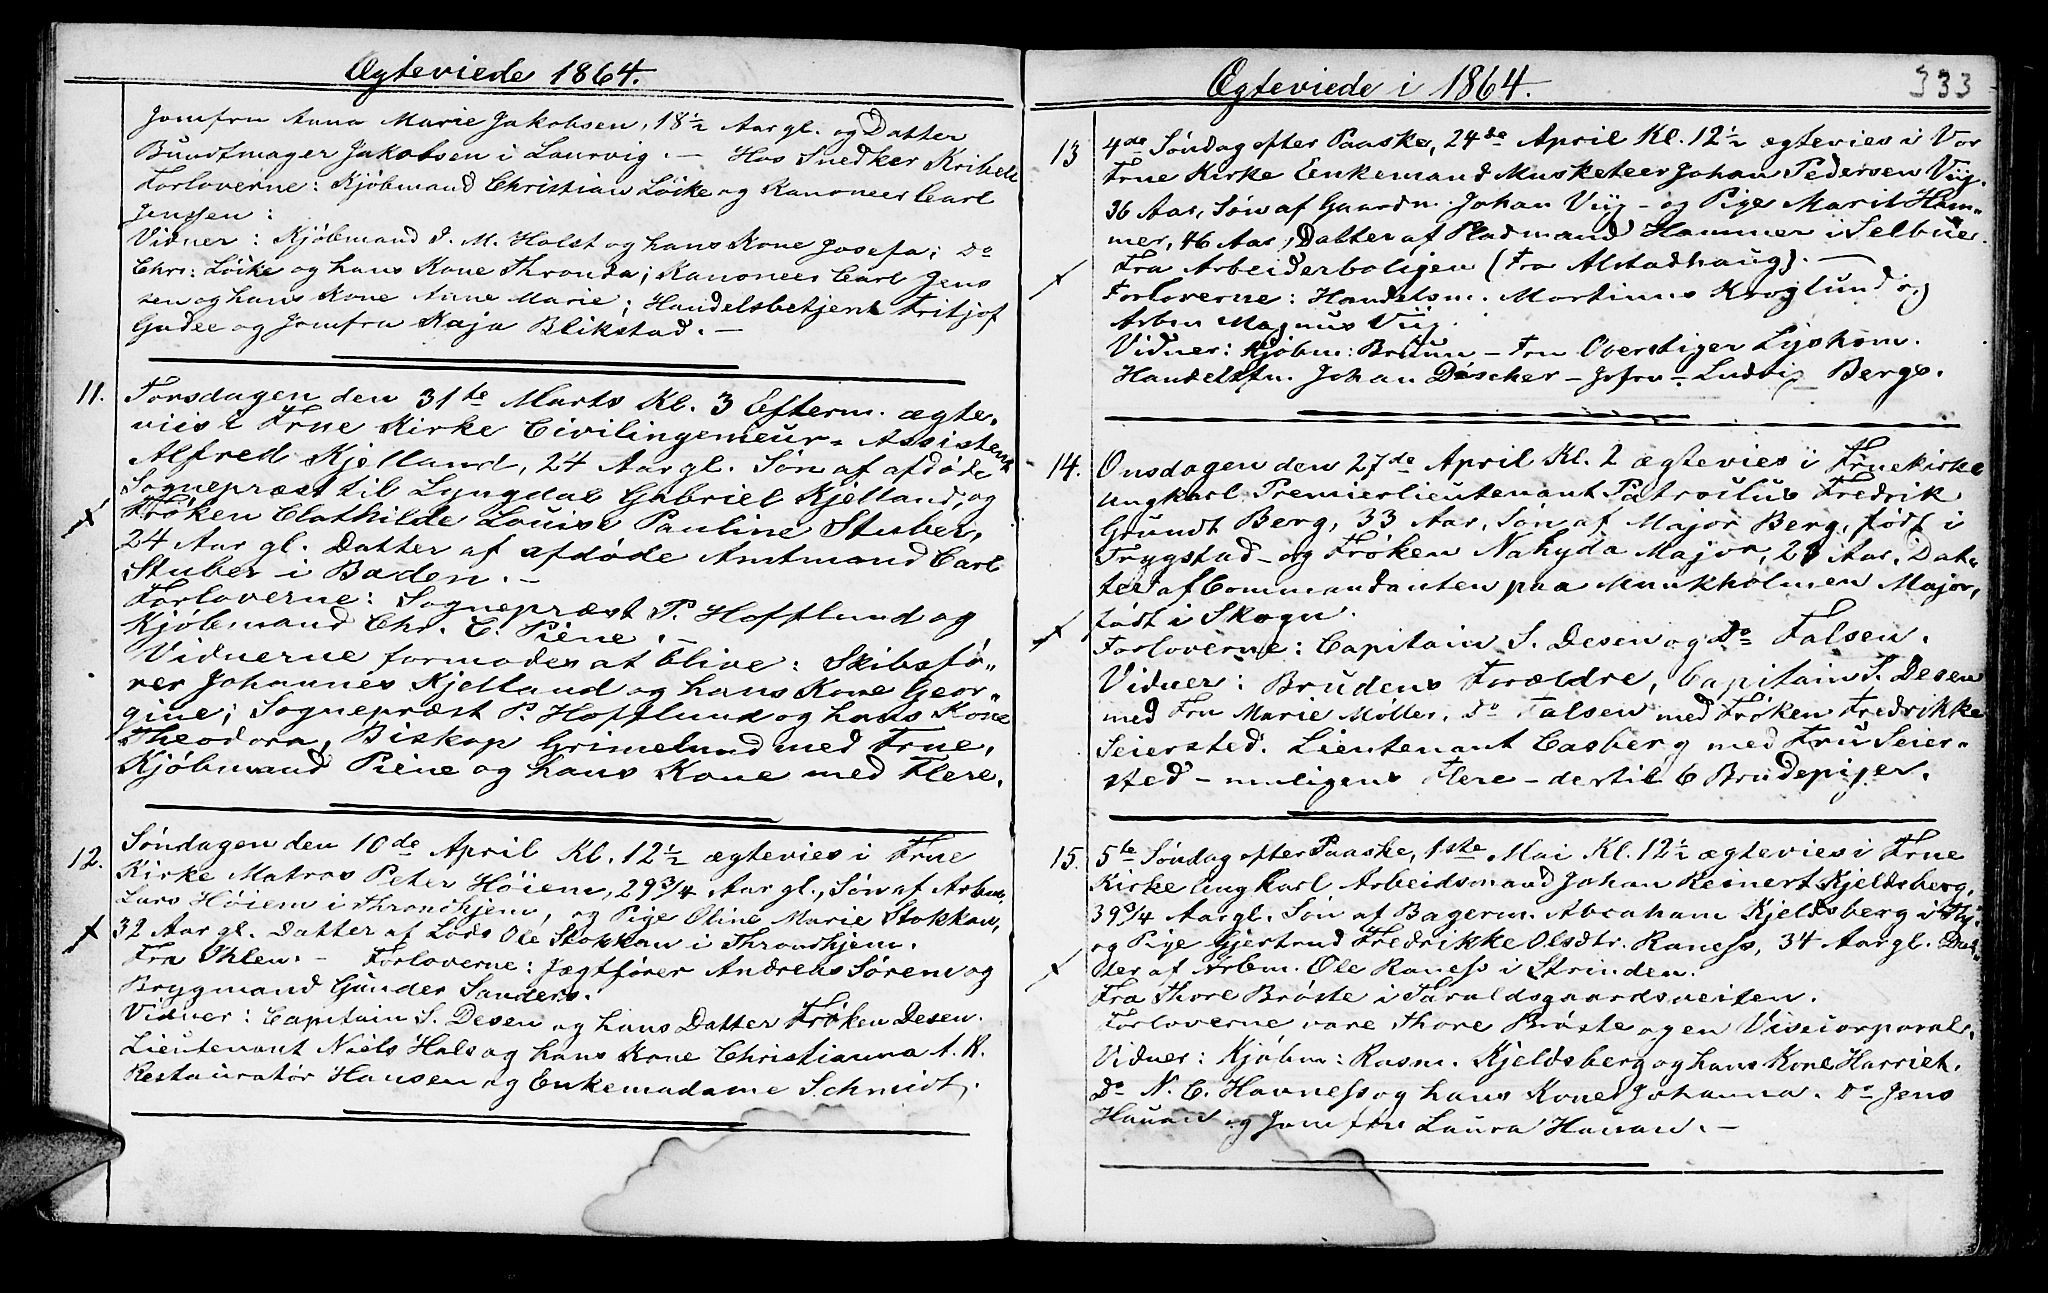 Ægteviede 1864.
Jomfru Anna Marie Jakobsen, 18½ Aar gl. og Datter
Bundtmager Jakobsen i Laurvig. — Hos Snedker
Forloverne: Kjøbmand Christian Löike og Kanoneer Carl
Jenssen:
Vidner: Kjøbmand J. M. Holst og hans Kone Josefa; Do
Chr: Löike og hans Kone Thronda; Kanoneer Carl Jens
sen og hans Kone Anne Marie; Handelsbetjent Fritjof
Gadee og Jomfru Kaja Blikstad. —
11. Torsdagen den 31te Marts Kl. 3 Efterm. ægte-
vies i Frue Kirke Civilingenieur-Assistent
Alfred Kjelland, 24 Aar gl. Søn af afdøde
Sognepræst til Lyngdal Gabriel Kjelland, og
Frøken Clothilde Louise Pauline Stuber,
24 Aar gl. Datter af afdøde Amtmand Carl
Stuber i Baden. —
Forloverne: Sognepræst P. Hofflund og
Kjøbmand Chr. C. Piene. —
Vidnerne formodes at blive: Skibsfø-
rer Johannes Kjelland og hans Kone Geor-
gine; Sognepræst P. Hofflund og hans Kone
Theodora, Biskop Grimelund med Frue,
Kjøbmand Piene og hans Kone med Flere.
12. Søndagen den 10de April Kl. 12½ ægtevies i Frue
Kirke Matros Peter Höiem, 29¾ Aar gl., Søn af Arbm.
Lars Höiem i Throndhjem, og Pige Oline Marie Stokkan,
32 Aar gl. Datter af Lods Ole Stokkan i Throndhjem.
Fra Ihlen. — Forloverne: Jægtfører Andreas Sörem og
Brygmand Gunder Sanders.
Vidner: Capitain S. Desen og hans Datter Frøken Desen.
Lieutenant Niels Hals og hans Kone Christianna A. R.
Restauratør Hansen og Enkemadame Schmidt.
Ægteviede i 1864.
333
13 4de Søndag efter Paaske, 24de April Kl. 12½ ægtevies i Vor
Frue Kirke Enkemand Musketeer Johan Pedersen Viij.
36 Aar, Søn af Gaardm. Johan Viij — og Pige Marit Ham-
mer, 46 Aar, Datter af Pladsmand Hammer i Selbue.
Fra Arbeiderboligen (Fra Alstadhaug). —
Forloverne: Handelsm. Martinus Kroglund og
Arbm Magnus Viij.
Vidner: Kjøbm: Bruun — Fru Overstiger Lysholm.
Handelsfm. Johan Döscher — Jofru — Ludvig Berge.
14. Onsdagen den 27de April Kl. 2 ægtevies i Fruekirke
Ungkarl Premierlieutenant Patroclus Fredrik
Grundt Berg, 33 Aar, Søn af Major Berg, født i
Trygstad — og Frøken Nahyda Major, 28 Aar, Dat-
ter af Commandanten paa Munkholmen Major,
født i Skogn.
Forloverne: Capitain S. Desen og Do Falsen.
Vidner: Brudens Forældre, Capitain S. Desen
med Fru Marie Møller, Do Falsen med Frøken Fredrikke
Seiersted. Lieutenant Casberg med Fru Seier-
sted — muligens Flere — dertil 6 Brudepiger.
15. 5te Søndag efter Paaske, 1ste Mai Kl. 12½ ægtevies i Frue
Kirke Ungkarl Arbeidsmand Johan Reinert Kjeldsberg,
39¾ Aar gl. Søn af Bagerm. Abraham Kjeldsberg i Thj:
og Pige Gjertrud Fredrikke Olsdtr. Raness, 34 Aar gl. Dat-
ter af Arbm. Ole Raness i Strinden.
Fra Thore Brøste i Taraldsgaardsveiten.
Forloverne vare Thore Brøste og en Vicecorporal.
Vidner: Kjøbm: Rasm. Kjeldsberg og hans Kone Harriet.
Do N. C. Havness og hans Kone Johanna. Do Jens
Hauan og Jomfru Laura Hauan. —